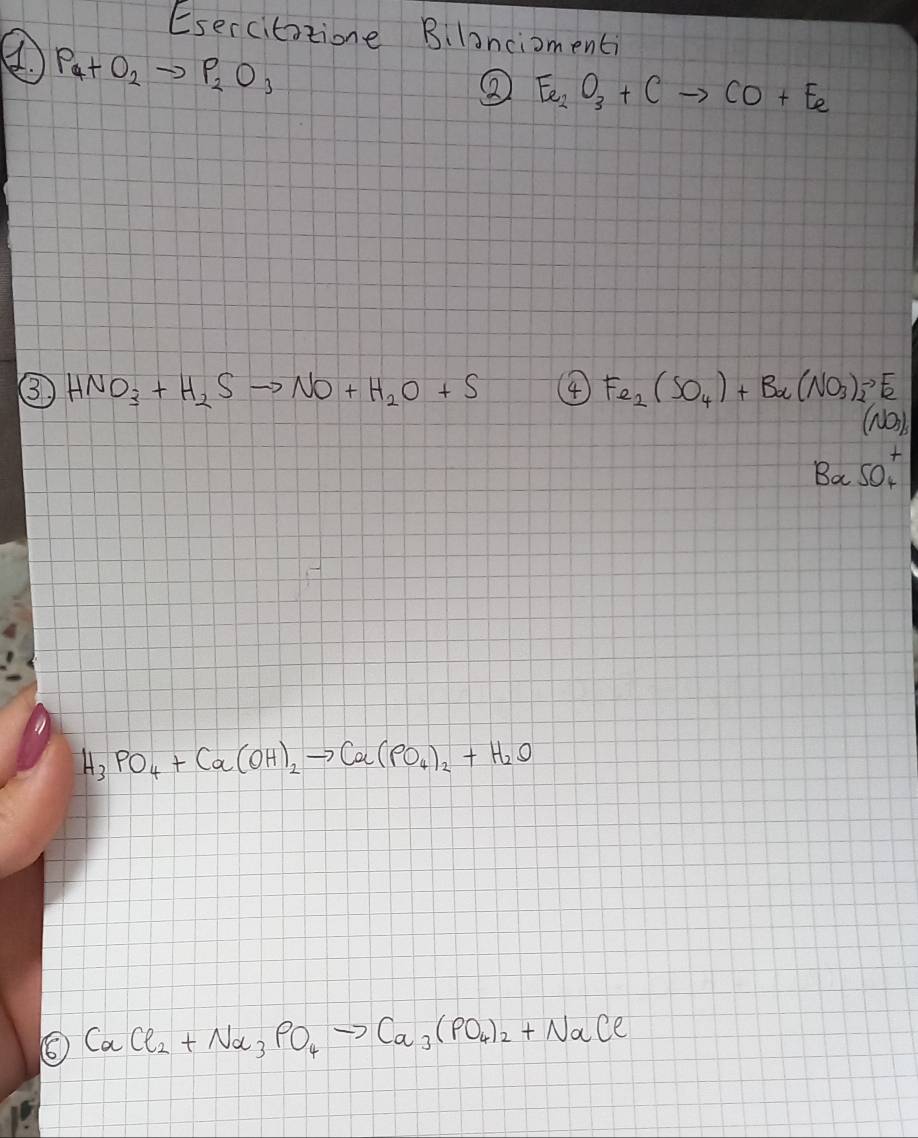 Esercitazione Bilanciamenti
1. P₄ + O₂ → P₂O₃
② Fe₂O₃ + C → CO + Fe
③ HNO₃ + H₂S → NO + H₂O + S
④ Fe₂(SO₄) + Ba(NO₃)₂ → F
(NO₃)₃
+
BaSO₄
H₃PO₄ + Ca(OH)₂ → Ca(PO₄)₂ + H₂O
⑥ CaCl₂ + Na₃PO₄ → Ca₃(PO₄)₂ + NaCl